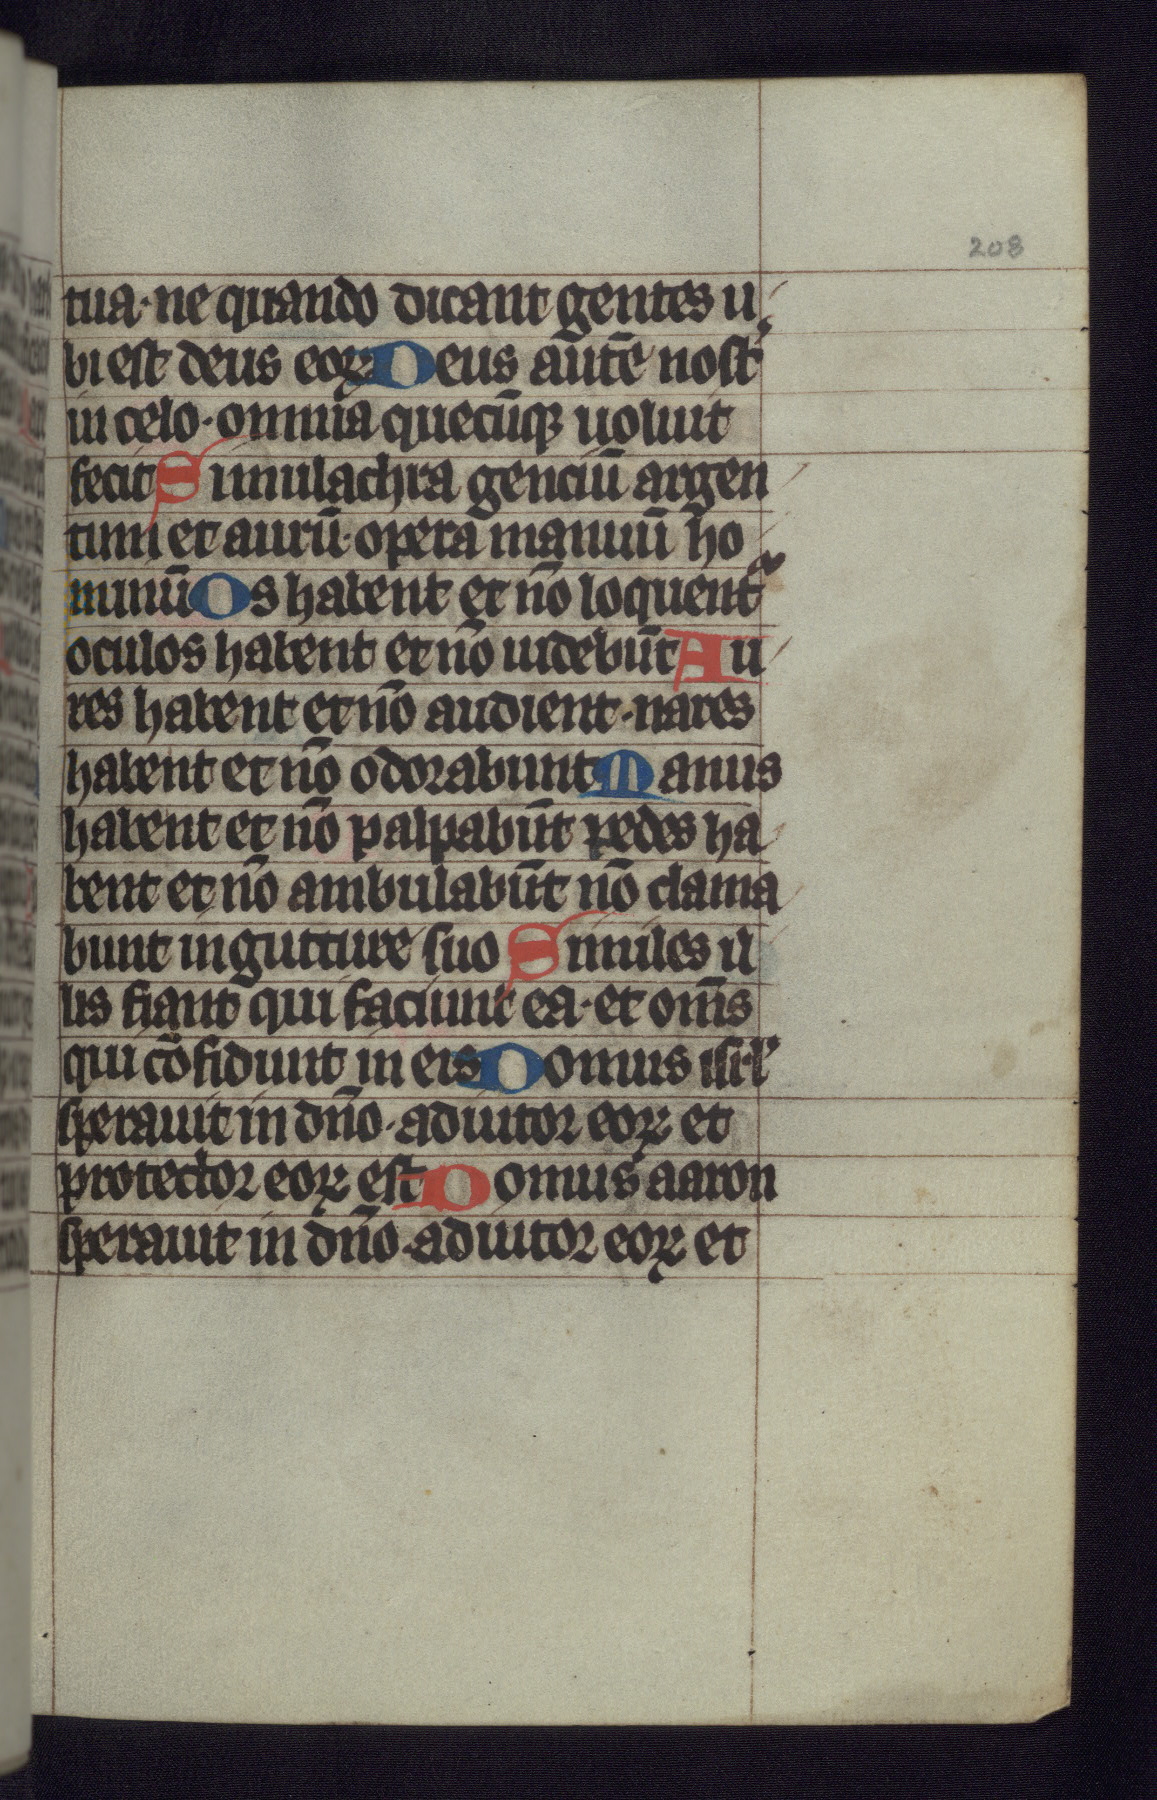 208
tua· ne quando dicant gentes u
bi est deus eoꝝ Deus aūtē nost᷑
in celo· omnia quecūqꝫ uoluit
fecit Simulachra genciū argen
tum et aurū· opera manuū ho
minū Os habent et nō loquent᷑
oculos habent et nō uidebūt Au
res habent et nō audient· nares
habent et nō odorabunt Manus
habent et nō palpabūt pedes ha
bent et nō ambulabūt nō clama
bunt in gutture suo Similes il
lis fiant qui faciunt ea· et om̄s
qui cōfidunt in eis Domus isrl᷑
sperauit in dn̄o· adiutor eoꝝ et
protector eoꝝ est Domus aaron
sperauit in dn̄o· adiutor eoꝝ et